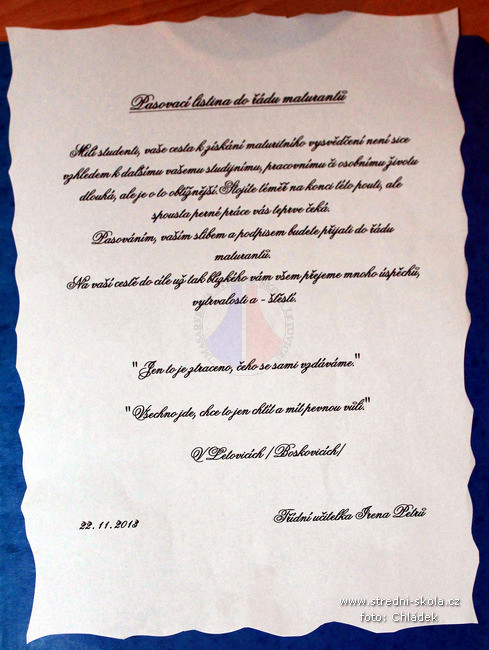 Pasovací listina do řádu maturantů
Milí studenti, vaše cesta k získání maturitního vysvědčení není sice
vzhledem k dalšímu vašemu studijnímu, pracovnímu či osobnímu životu
dlouhá, ale je o to obtížnější. Stojíte téměř na konci této pouti, ale
spousta perné práce vás teprve čeká.
Pasováním, vaším slibem a podpisem budete přijati do řádu
maturantů.
Na vaší cestě do cíle už tak blízkého vám všem přejeme mnoho úspěchů,
vytrvalosti a - štěstí.
"Jen to je ztraceno, čeho se sami vzdáváme."
"Všechno jde, chce to jen chtít a mít pevnou vůli."
V Letovicích /Boskovicích/
22.11.2013
Třídní učitelka Irena Petrů
www.stredni-skola.cz
foto: Chládek